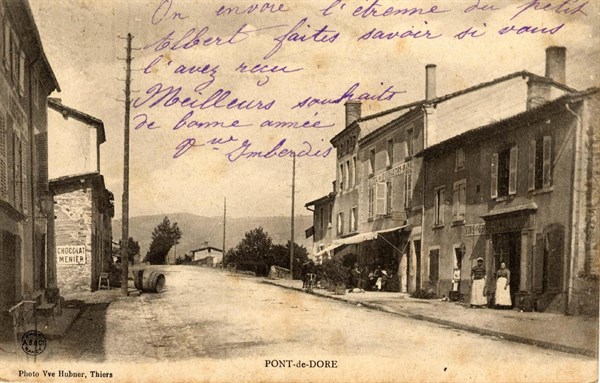 On envoie l'étrenne du petit
Albert faites savoir si vous
l'avez reçu
Meilleurs souhaits
de bonne année
Imberdis
CHOCOLAT
MENIER
PONT-de-DORE
Photo Vve Hubner, Thiers